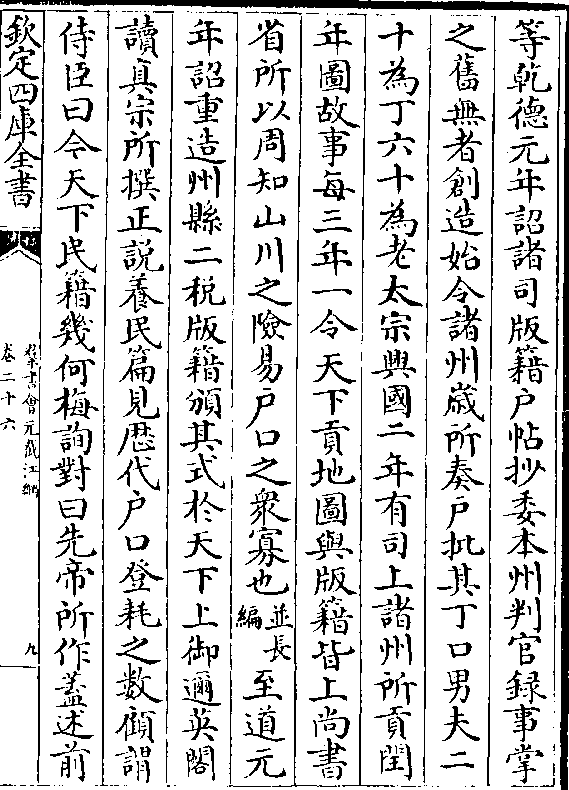 等乾德元年詔諸司版籍戶帖抄委本州判官録事掌
之舊無者創造始令諸州歳所奏戶批其丁口男夫二
十為丁六十為老太宗興國二年有司上諸州所貢閏
年圖故事每三年一令天下貢地圖與版籍皆上尚書
省所以周知山川之險易戶口之衆寡也並長編至道元
年詔重造州縣二税版籍頒其式於天下上御邇英閣
讀真宗所撰正説養民篇見歴代戶口登耗之數顧謂
侍臣曰今天下民籍幾何梅詢對曰先帝所作蓋述前
欽定四庫全書
羣書會元截江網
卷二十六
九